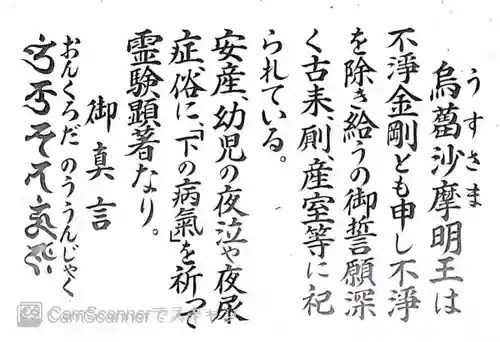 うすさま
烏蒭沙摩明王は
不淨金剛とも申し不淨
を除き給うの御誓願深
く古来、厠、産室等に祀
られている。
安産、幼児の夜泣や夜尿
症、俗に、「下の病氣」を祈って
霊験顕著なり。
御真言
おんくろだのううんじゃく
CamScannerでスキャン